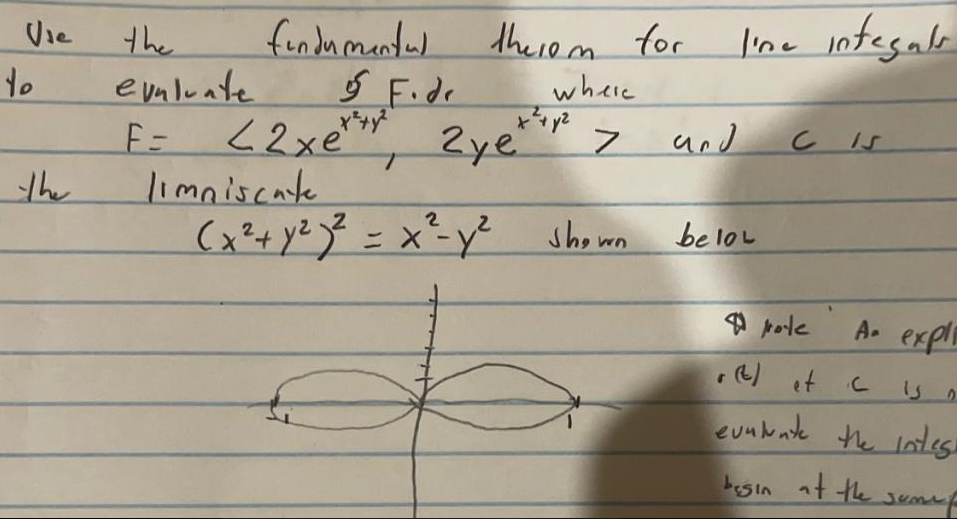 Use the fundumental therom for line integrals
to evaluate ∮ F·dr where
F = <2xe^{x²+y²}, 2ye^{x²+y²}> and C is
the limniscate
(x²+y²)² = x²-y² shown below
note An
r(t) of C is
-1 1
evaluate the
begin at the same